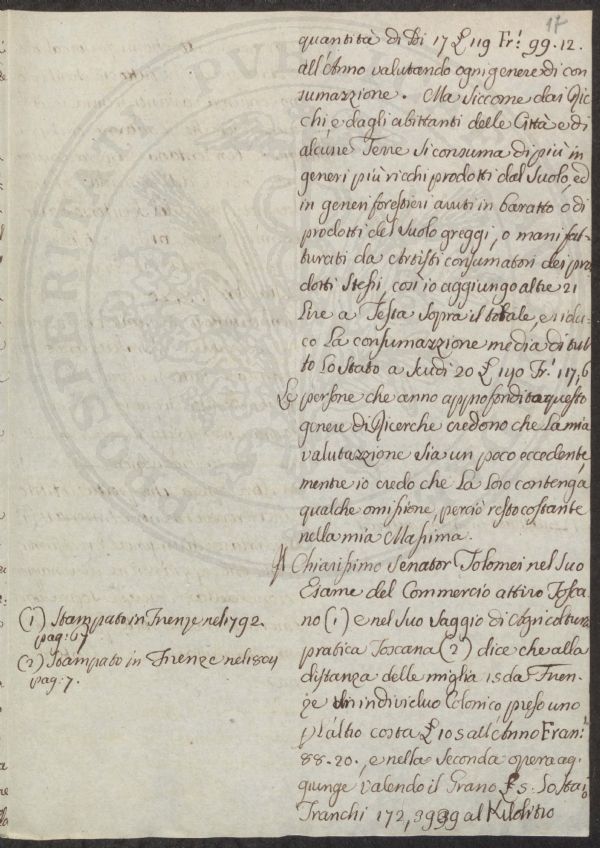 17
quantità di Di 17 £ 119 Fr.i 99.12.
all'Anno valutando ogni genere di con
sumazzione. Ma siccome dai Ric
chi, e dagli abittanti delle Città e di
alcune Terre si consuma di più in
generi più ricchi prodotti dal Suolo, ed
in generi forestieri avuti in baratto ò di
prodotti del Suolo greggi, o mani fat-
turati da Artisti consumatori dei pro
dotti stessi, così io aggiungo altre 21
Lire a Testa sopra il totale, e ridu-
co La consumazzione media di tut
to Lo Stato a Scudi 20 £ 140 Fr.i 117,6
Le persone che anno approfondita questo
genere di Ricerche credono che La mia
valutazzione sia un poco eccedente,
mentre io credo che La Loro contenga
qualche omissione, perciò resto costante
nella mia Massima.
Il Chiarissimo Senator Tolomei nel Suo
Esame del Commercio attivo Tosca
no (1) e nel Suo Saggio di Agricoltura
pratica Toscana (2) dice che alla
distanza delle miglia 15 da Firen-
ze un individuo Colonico preso uno
p l'altro costa £ 105 all'Anno Fran.i
88.20., e nella Seconda opera ag-
giunge valendo il Grano £ 5: Lo Staio
Franchi 172,3939 al Kilolitro
(1) Stampato in Firenze nel 1792.
pag: 67
(2) Stampato in Firenze nel 1804
pag: 7.
PROSPERITATI PUBLICAE